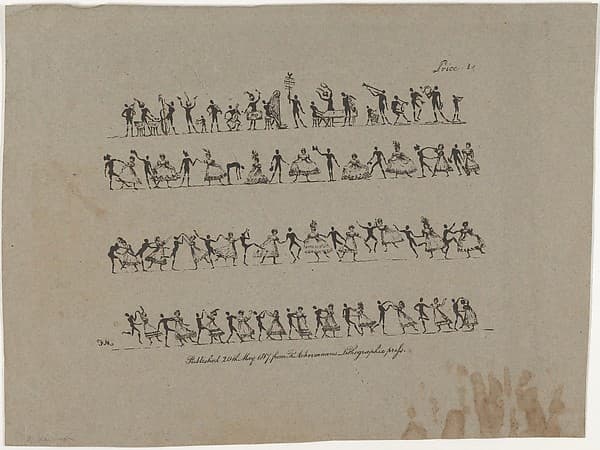 Price 1s
Published 20th May 1817 from R. Ackermanns Lithographic press.